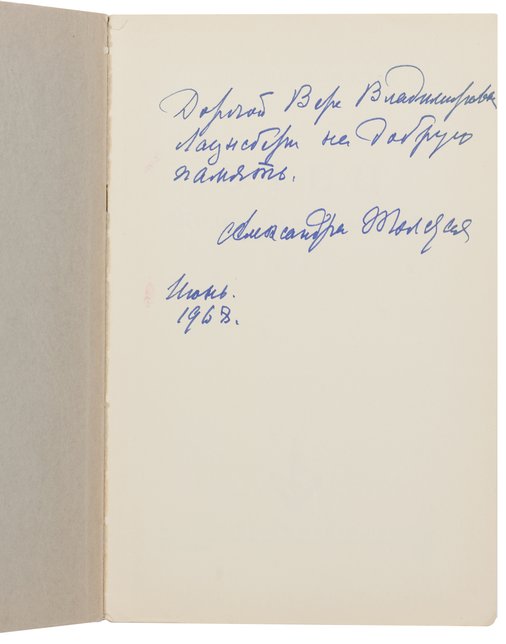 Дорогой Вере Владимировне
Лаунсбери на добрую
память.
Александра Толстая
Июнь.
1968.